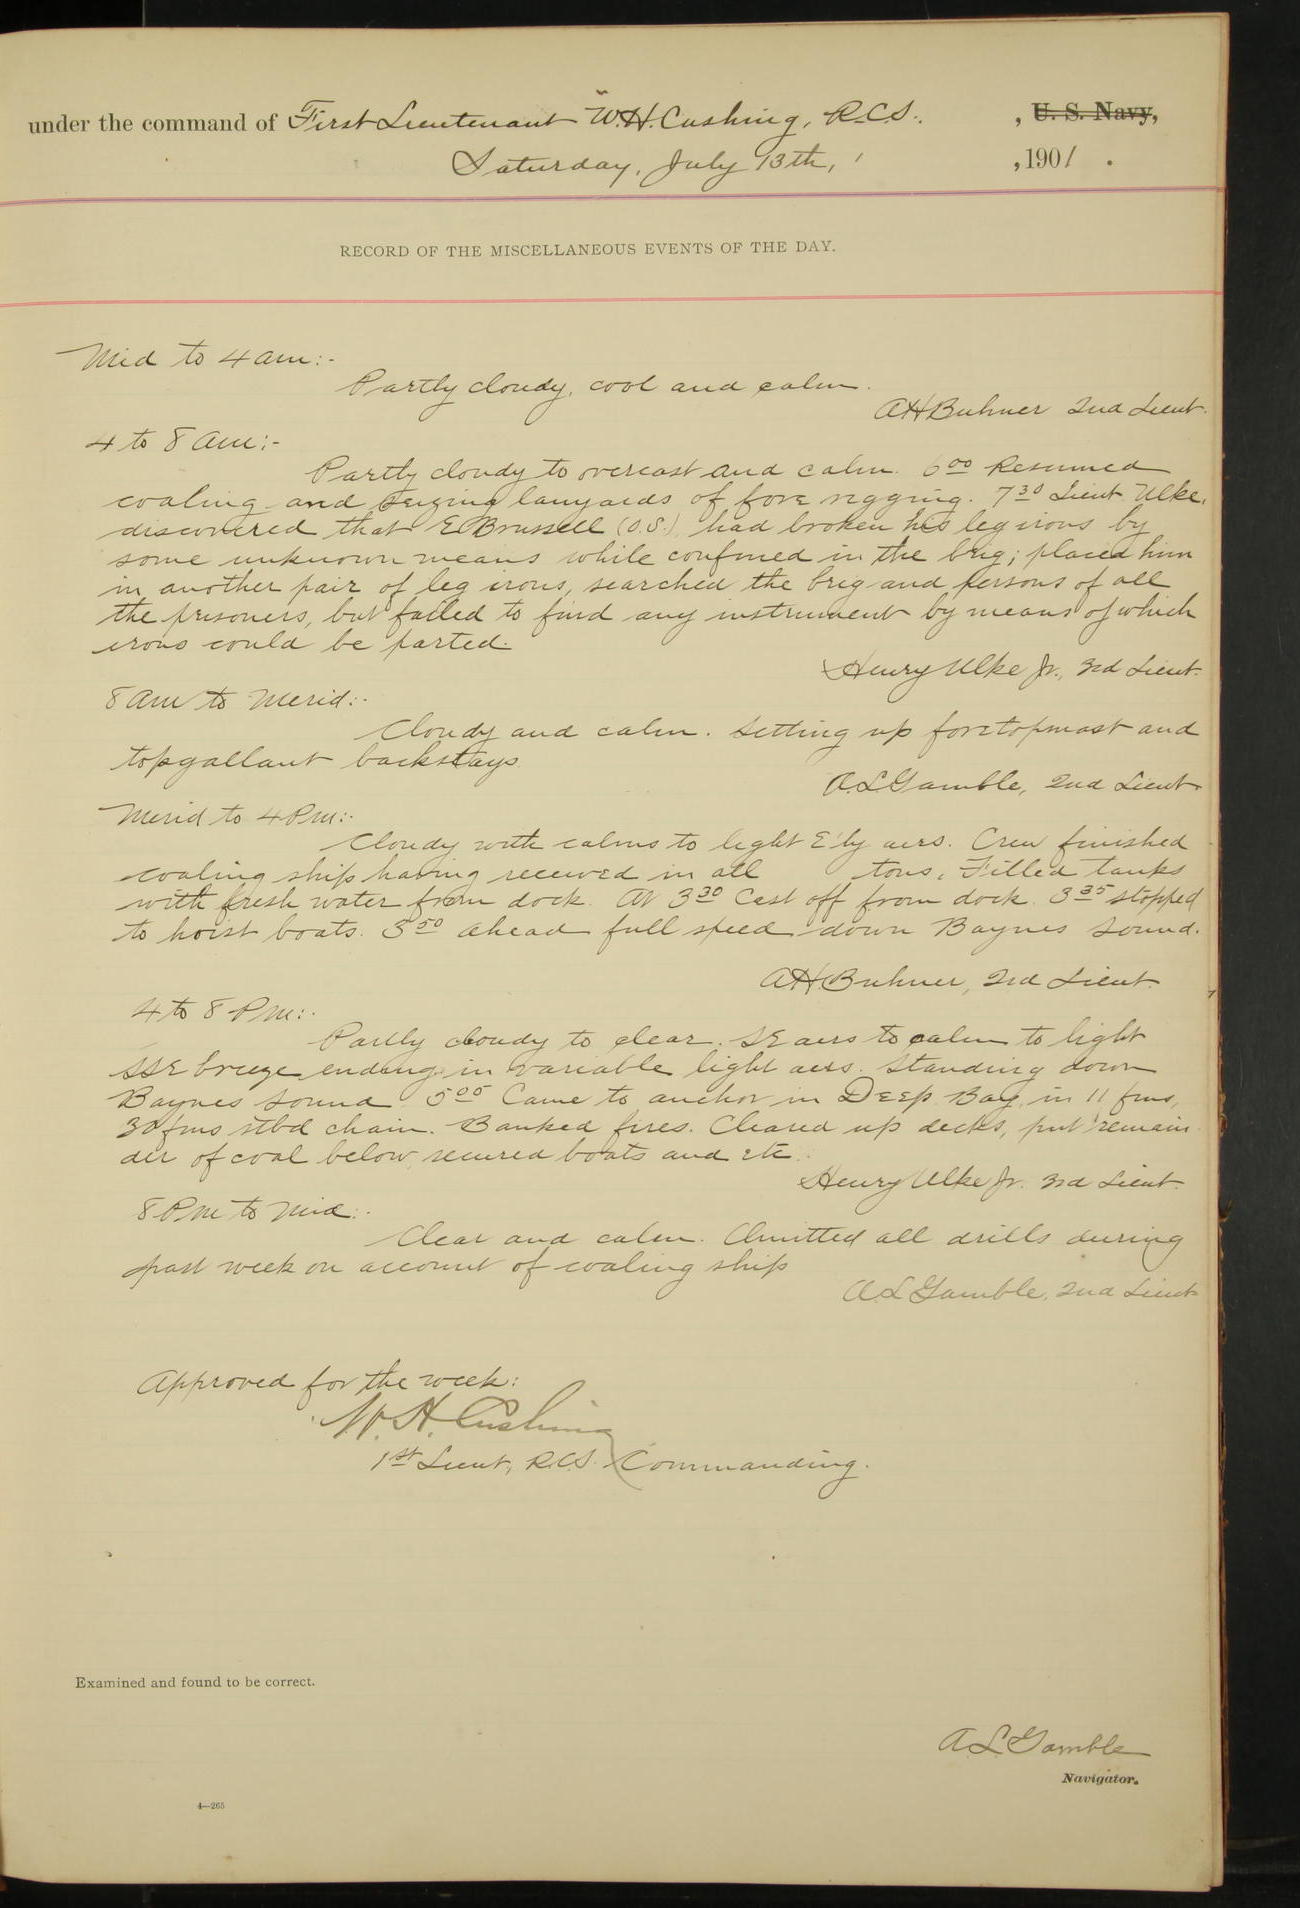 under the command of First Lieutenant W.H. Cushing, R.C.S., , U. S. Navy,
Saturday, July 13th, , 1901 .
RECORD OF THE MISCELLANEOUS EVENTS OF THE DAY.
Mid to 4 am:-
Partly cloudy, cool and calm.
AH Buhner 2nd Lieut.
4 to 8 am:-
Partly cloudy to overcast and calm. 6 00 Resumed
coaling and seizing lanyards of fore rigging. 7 30 Lieut Ulke,
discovered that E Brussell (O.S.), had broken his leg irons by
some unknown means while confined in the brig; placed him
in another pair of leg irons, searched the brig and persons of all
the prisoners, but failed to find any instrument by means of which
irons could be parted.
Henry Ulke Jr., 3rd Lieut.
8 am to Merid:-
Cloudy and calm. Setting up foretopmast and
topgallant backstays.
A.L. Gamble, 2nd Lieut.
Merid to 4 Pm:-
Cloudy with calms to light E'ly airs. Crew finished
coaling ship having received in all tons. Filled tanks
with fresh water from dock. At 3 30 Cast off from dock. 3 35 stopped
to hoist boats. 3 50 ahead full speed down Baynes Sound.
AH Buhner, 2nd Lieut.
4 to 8 Pm:-
Partly cloudy to clear. SE airs to calm to light
SSE breeze ending in variable light airs. Standing down
Baynes Sound. 5 05 Came to anchor in Deep Bay, in 11 fms,
30 fms stbd chain. Banked fires. Cleared up decks, put remain
der of coal below, secured boats and etc.
Henry Ulke Jr. 3rd Lieut.
8 Pm to Mid:-
Clear and calm. Omitted all drills during
past week on account of coaling ship
A.L. Gamble, 2nd Lieut
Approved for the week:
W. H. Cushing
1st Lieut, R.C.S. Commanding.
Examined and found to be correct.
A.L. Gamble
Navigator.
4—265